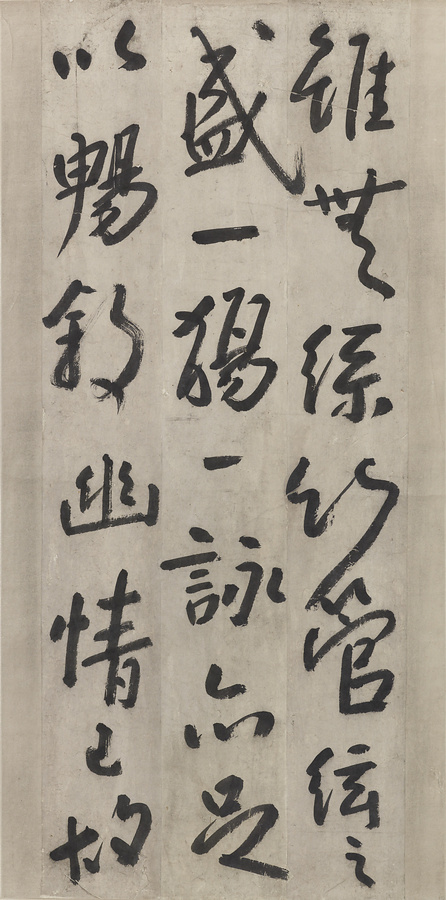 雖無絲竹管絃之
盛一觴一詠亦足
以暢叙幽情已故